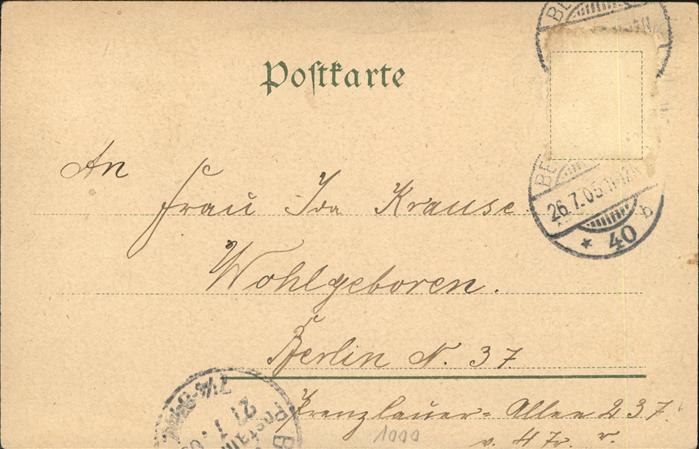 Postkarte
An
Frau Ida Krause.
Wohlgeboren.
Berlin N. 37.
Prenzlauer-Allee 237.
v. H Tr. r.
1000
BE
26.7.05.11-12N
* 40 b